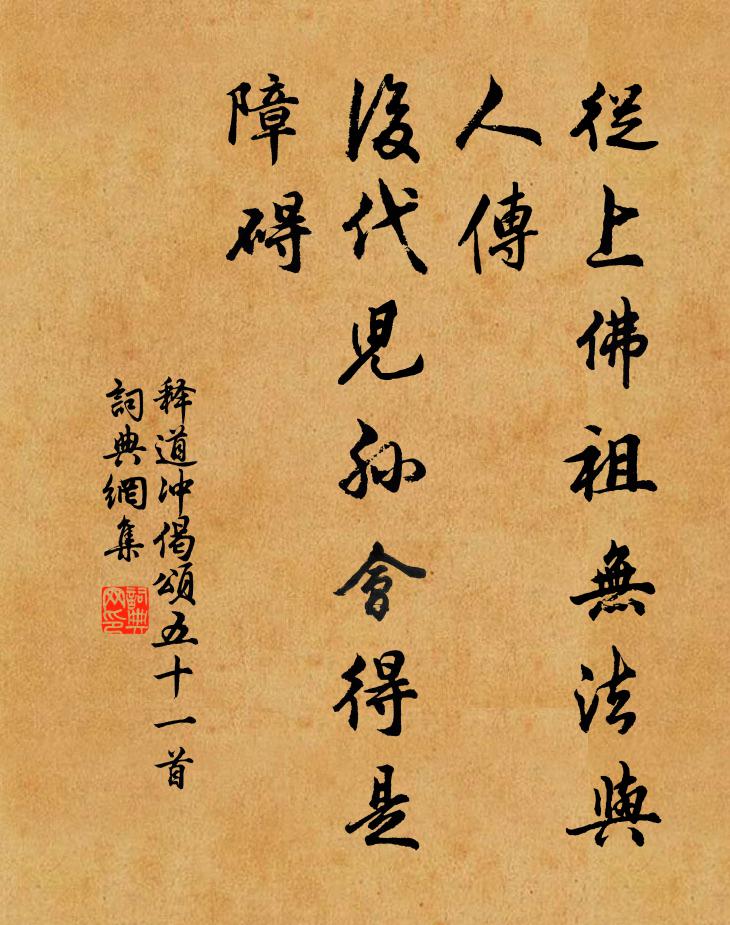 從上佛祖無法與
人傳
後代兒孫會得是
障碍
释道冲偈頌五十一首
詞典網集
詞典
网印